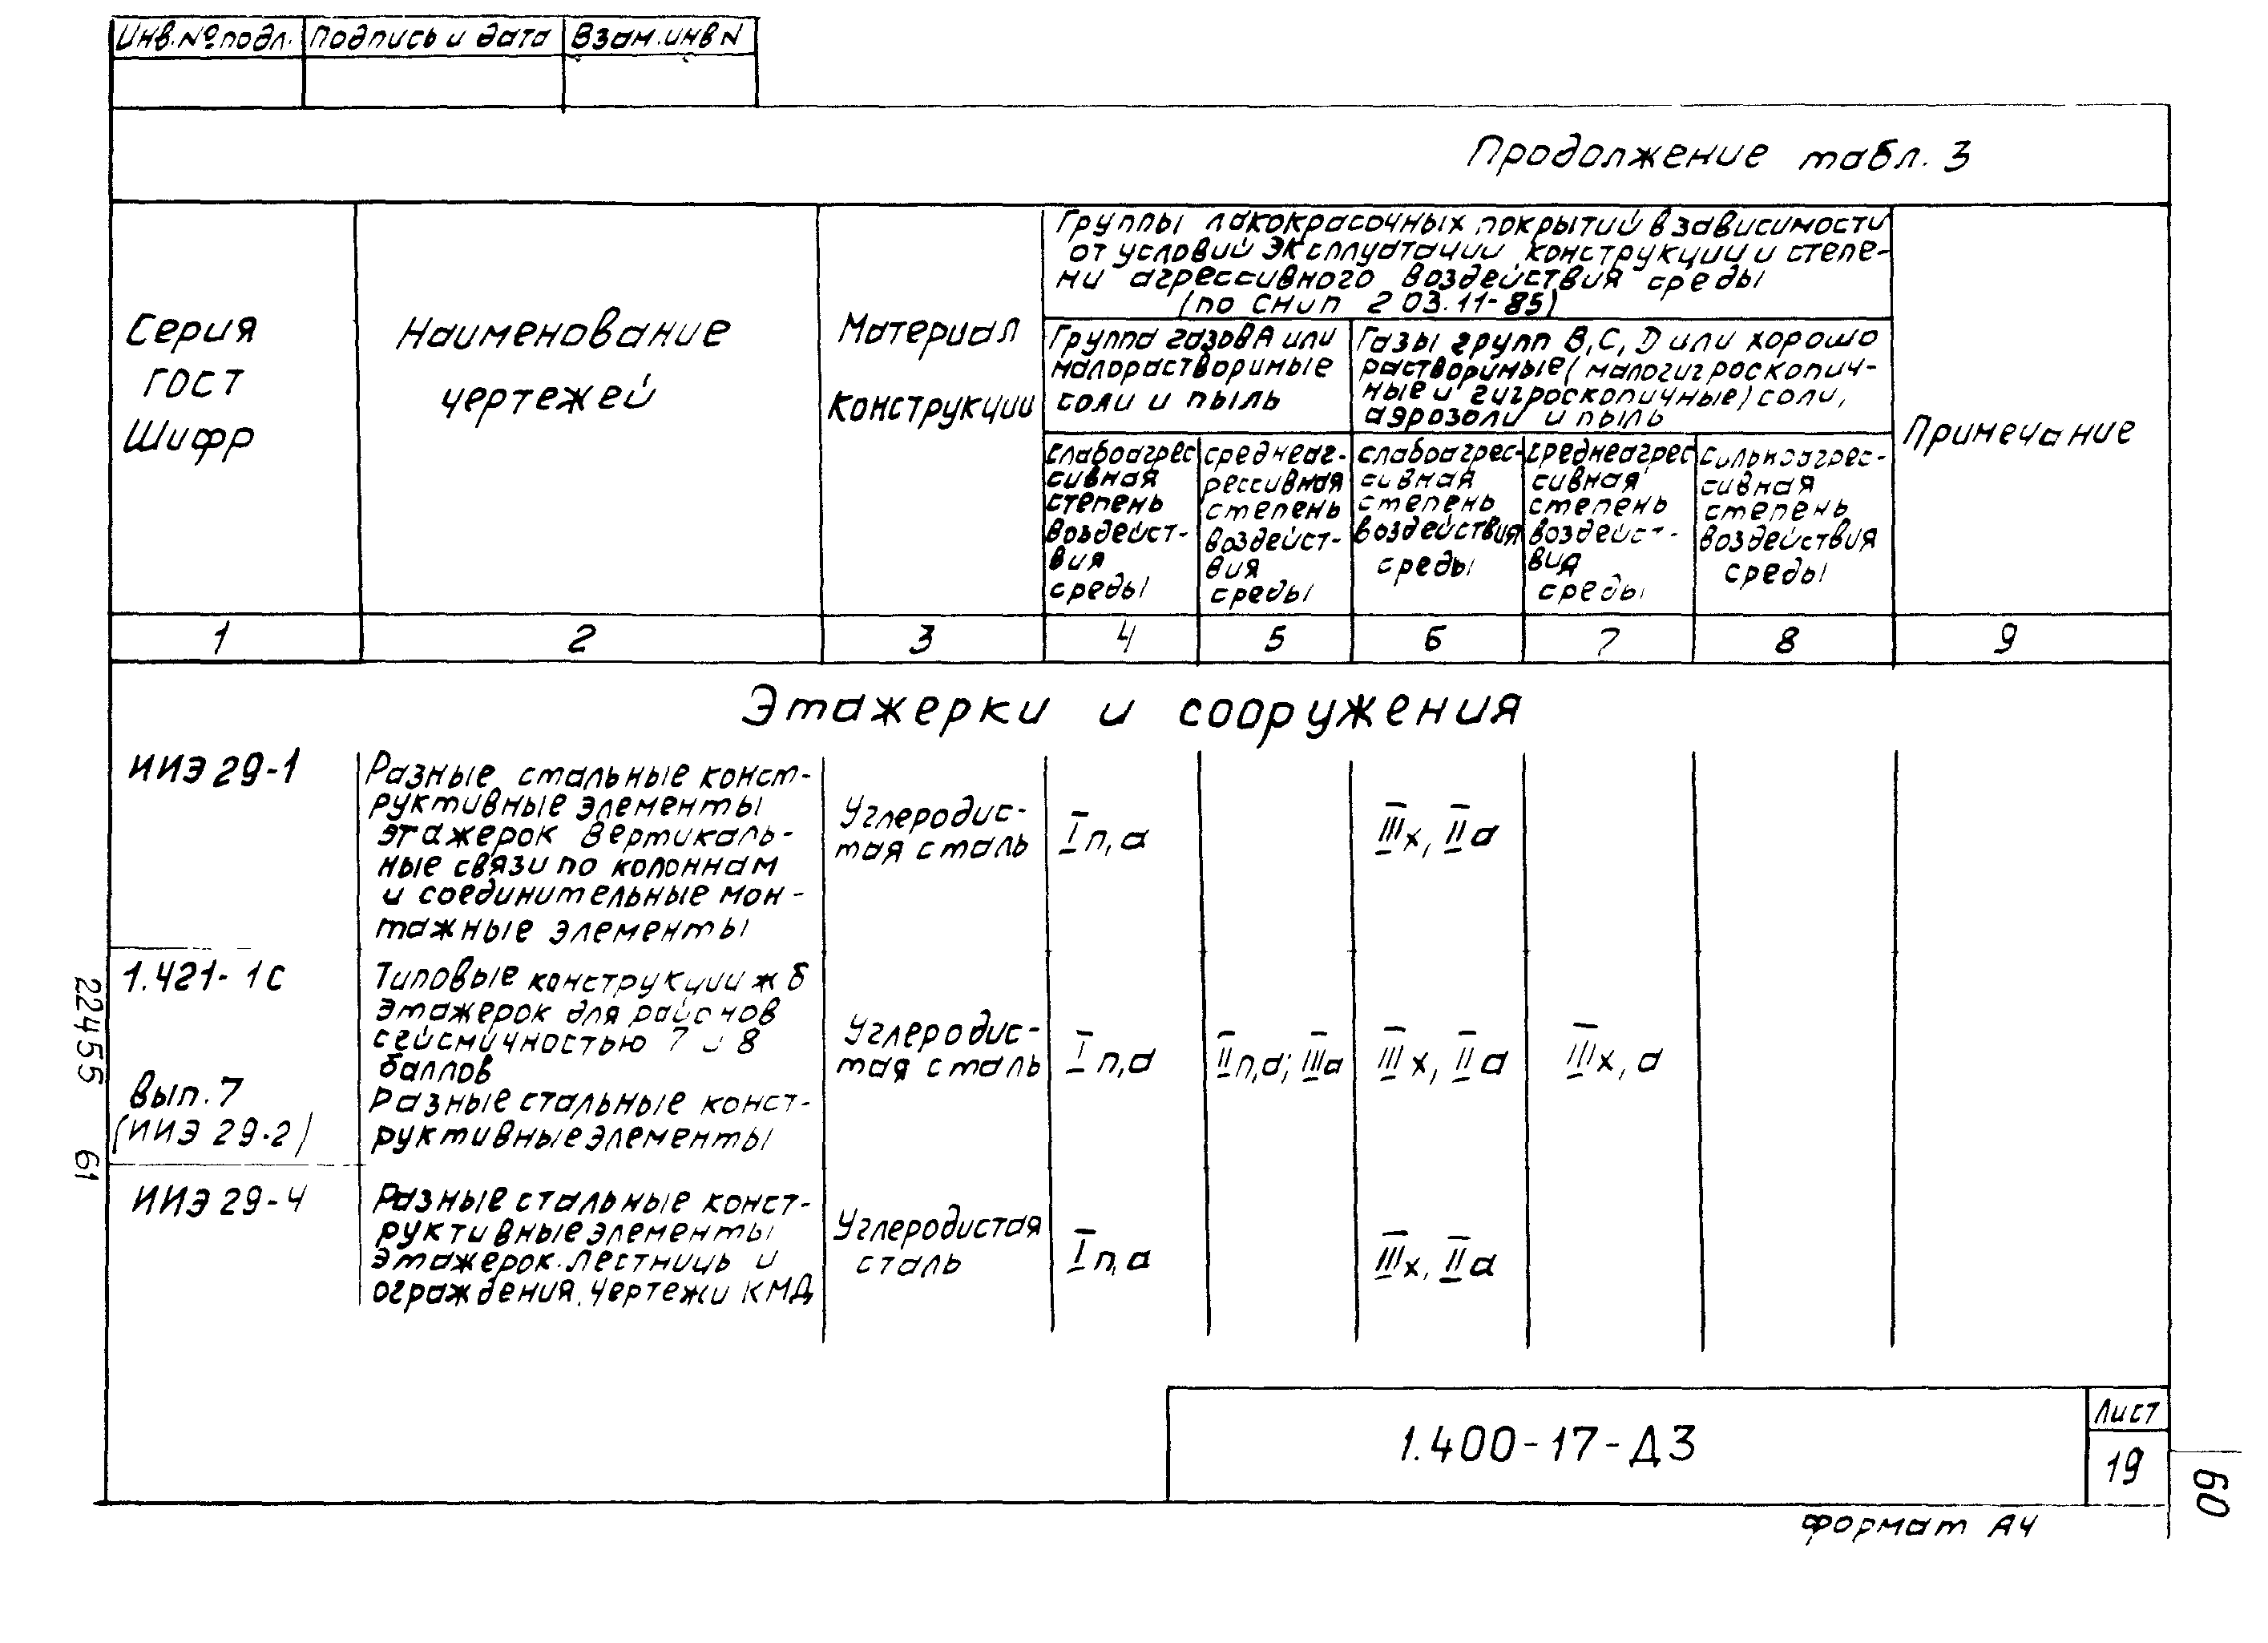 Инв.№подл. Подпись и дата Взам.инв N
Продолжение табл. 3
Серия
ГОСТ
Шифр
Наименование
чертежей
Материал
конструкции
Группы лакокрасочных покрытий в зависимости
от условий эксплуатации конструкции и степе-
ни агрессивного воздействия среды
(по СНиП 2 03.11-85)
Группа газов А или
малорастворимые
соли и пыль
Газы групп В, С, D или хорошо
растворимые (малогигроскопич-
ные и гигроскопичные) соли,
аэрозоли и пыль
слабоагрес
сивная
степень
воздейст-
вия
среды
среднеаг-
рессивная
степень
воздейст-
вия
среды
слабоагрес-
сивная
степень
воздействия
среды
среднеагрес
сивная
степень
воздейст-
вия
среды
сильноагрес-
сивная
степень
воздействия
среды
Примечание
1 2 3 4 5 6 7 8 9
Этажерки и сооружения
ИИЭ 29-1
Разные стальные конст-
руктивные элементы
этажерок вертикаль-
ные связи по колоннам
и соединительные мон-
тажные элементы
Углеродис-
тая сталь
Iп,а
IIIх, IIа
1.421-1С
Вып. 7
(ИИЭ 29-2)
Типовые конструкции ж б
этажерок для районов
сейсмичностью 7 и 8
баллов
Разные стальные конст-
руктивные элементы
Углеродис-
тая сталь
Iп,а
IIп,а; IIIа
IIIх, IIа
IIIх, а
ИИЭ 29-4
Разные стальные конст-
руктивные элементы
этажерок. Лестницы и
ограждения. Чертежи КМД
Углеродистая
сталь
Iп,а
IIIх, IIа
22455 61
1.400-17-Д3
Лист
19
60
Формат А4